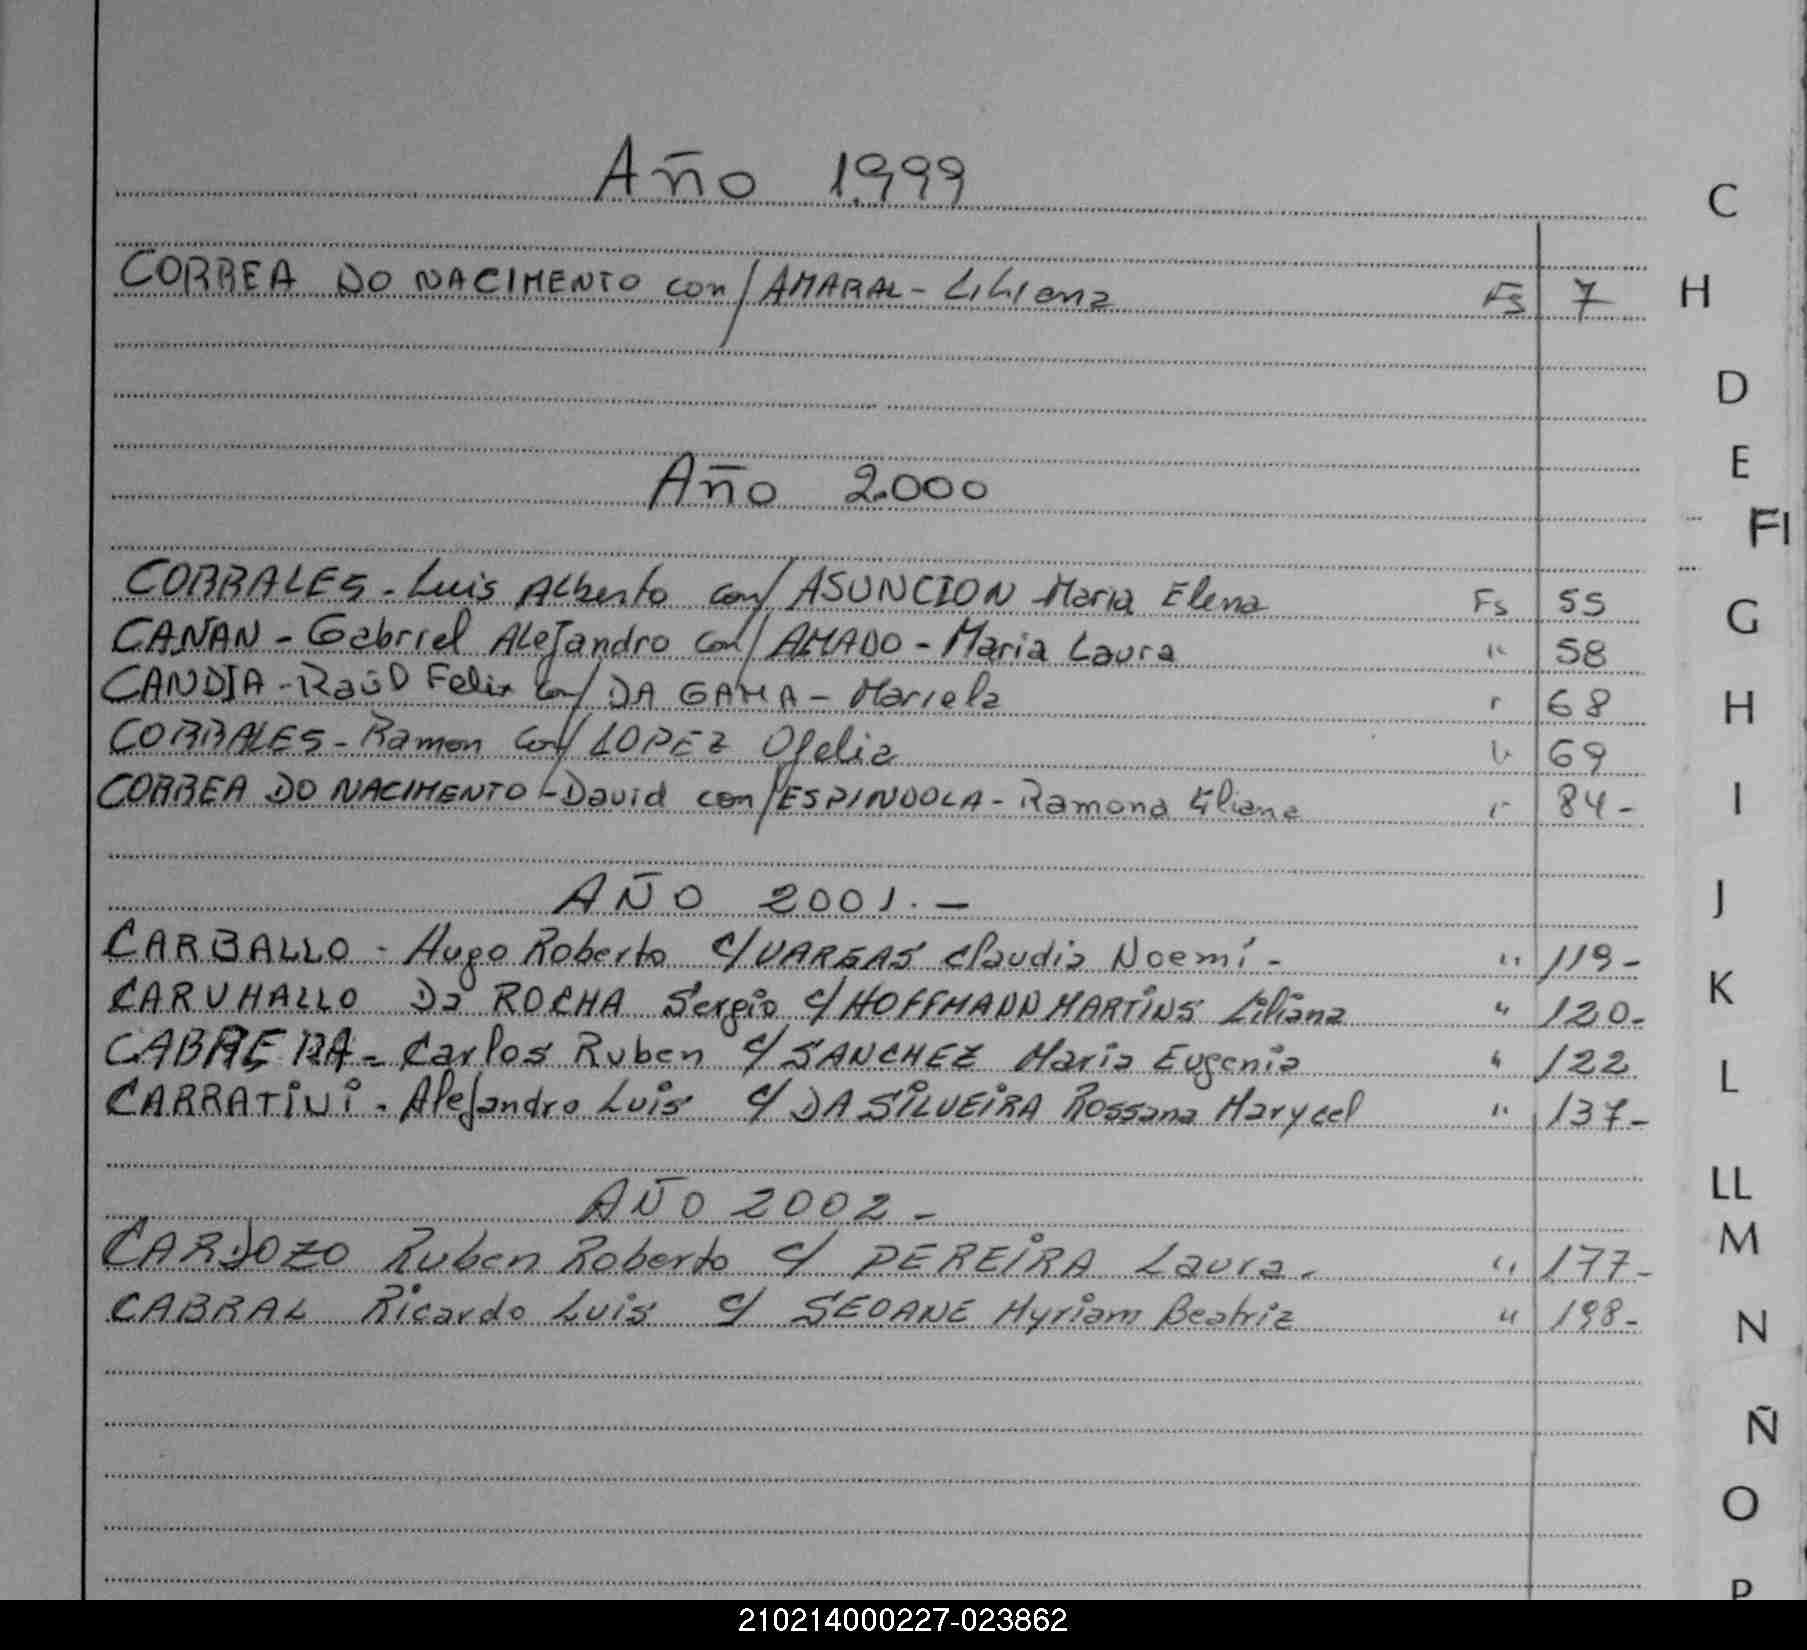 Año 1.999
CORREA DO NACIMENTO con/ AMARAL - Liliana Fs 7
Año 2.000
CORRALES - Luis Alberto con/ ASUNCION Maria Elena Fs 55
CAÑAN - Gabriel Alejandro con/ AMADO - Maria Laura " 58
CANDIA - Raúl Felix con/ DA GAMA - Mariela " 68
CORRALES - Ramon con/ LOPEZ Ofelia " 69
CORREA DO NACIMENTO - David con/ ESPINDOLA - Ramona Eliane " 84-
AÑO 2001.-
CARBALLO - Hugo Roberto c/ VARGAS Claudia Noemí - " 119-
CARVHALLO Da ROCHA Sergio c/ HOFFMANN MARTINS Liliana " 120-
CABRERA - Carlos Ruben c/ SANCHEZ Maria Eugenia " 122
CARRATINI - Alejandro Luis c/ DA SILVEIRA Rossana Marycel " 137-
AÑO 2002-
CARDOZO Ruben Roberto c/ PEREIRA Laura. " 177-
CABRAL Ricardo Luis c/ SEOANE Myriam Beatriz " 198-
C
H
D
E
FI
G
H
I
J
K
L
LL
M
N
Ñ
O
P
210214000227-023862